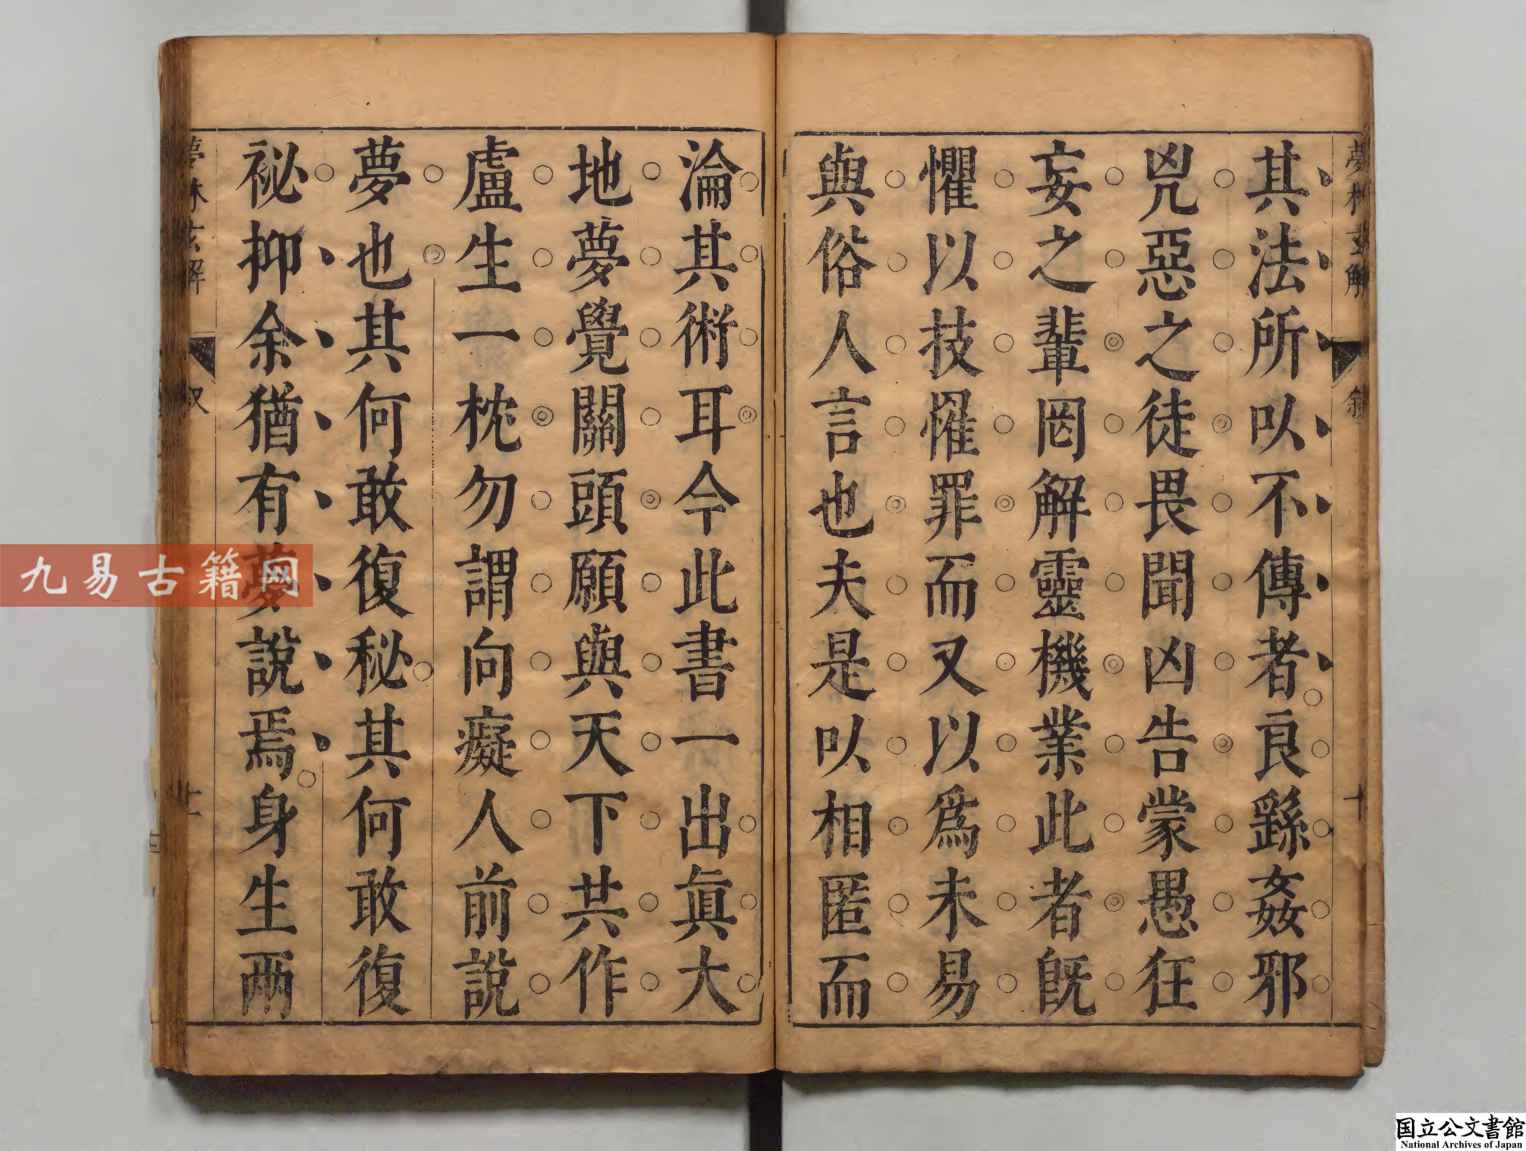 其法所以不傳者良繇姦邪
兇惡之徒畏聞凶告蒙愚狂
妄之輩罔解靈機業此者旣
懼以技罹罪而又以爲未易
與俗人言也夫是以相匿而
淪其術耳今此書一出眞大
地夢覺關頭願與天下共作
盧生一枕勿謂向癡人前說
夢也其何敢復秘其何敢復
祕抑余猶有夢說焉身生兩
夢林玄解
敘
十
夢林玄解
敘
十一
九易古籍网
国立公文書館
National Archives of Japan